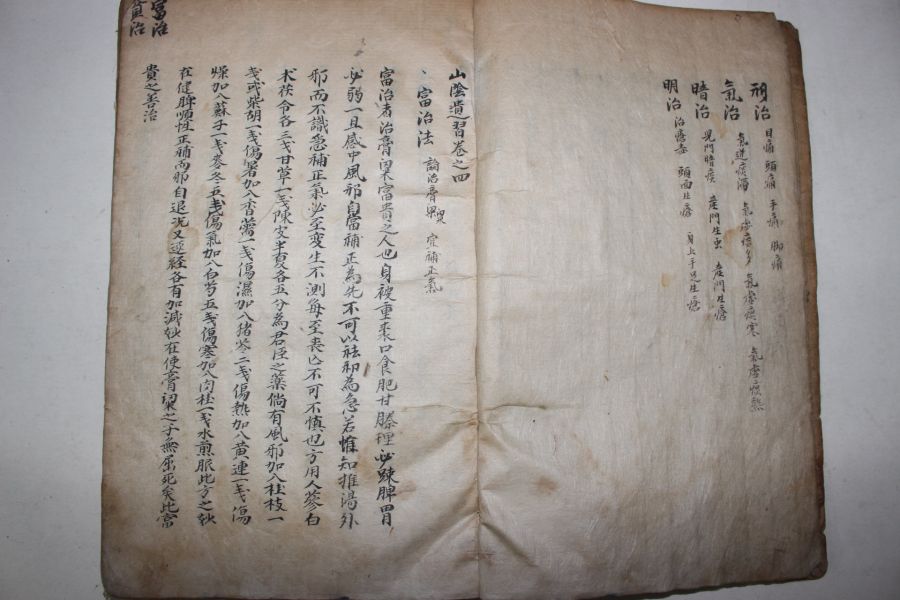 形治 目痛 頭痛 手痛 脚痛
氣治 氣逆痰滯 氣虛痰多 氣虛痰寒 氣虛痰熱
暗治 児門暗疾 産門生虫 産門生瘡
明治 治瘡毒 頭面上瘡 身上手足生瘡
山陰遺習卷之四
富治法 論治膏粱 宜補正氣
富治者治膏粱富貴之人也身被重裘口食肥甘腠理必踈脾胃
必弱一且感中風邪自當補正為先不可以祛邪為急若惟知推湯外
邪而不識急補正氣必至変生不測每至喪亡不可不慎也方用人蔘白
朮茯令各三戔甘草一戔陳皮半夏各五分為君臣之藥倘有風邪加入桂枝一
戔或柴胡一戔傷暑加入香薷一戔傷濕加入猪苓二戔傷熱加入黃連一戔傷
燥加入蘇子一戔麥冬五戔傷氣加入白芍五戔傷寒加入肉桂一戔水煎服此方之妙
在健脾順性正補而邪自退况又逐経各有加減妙在使膏粱之子無屈死矣此富
貴之善治
富治
貧治